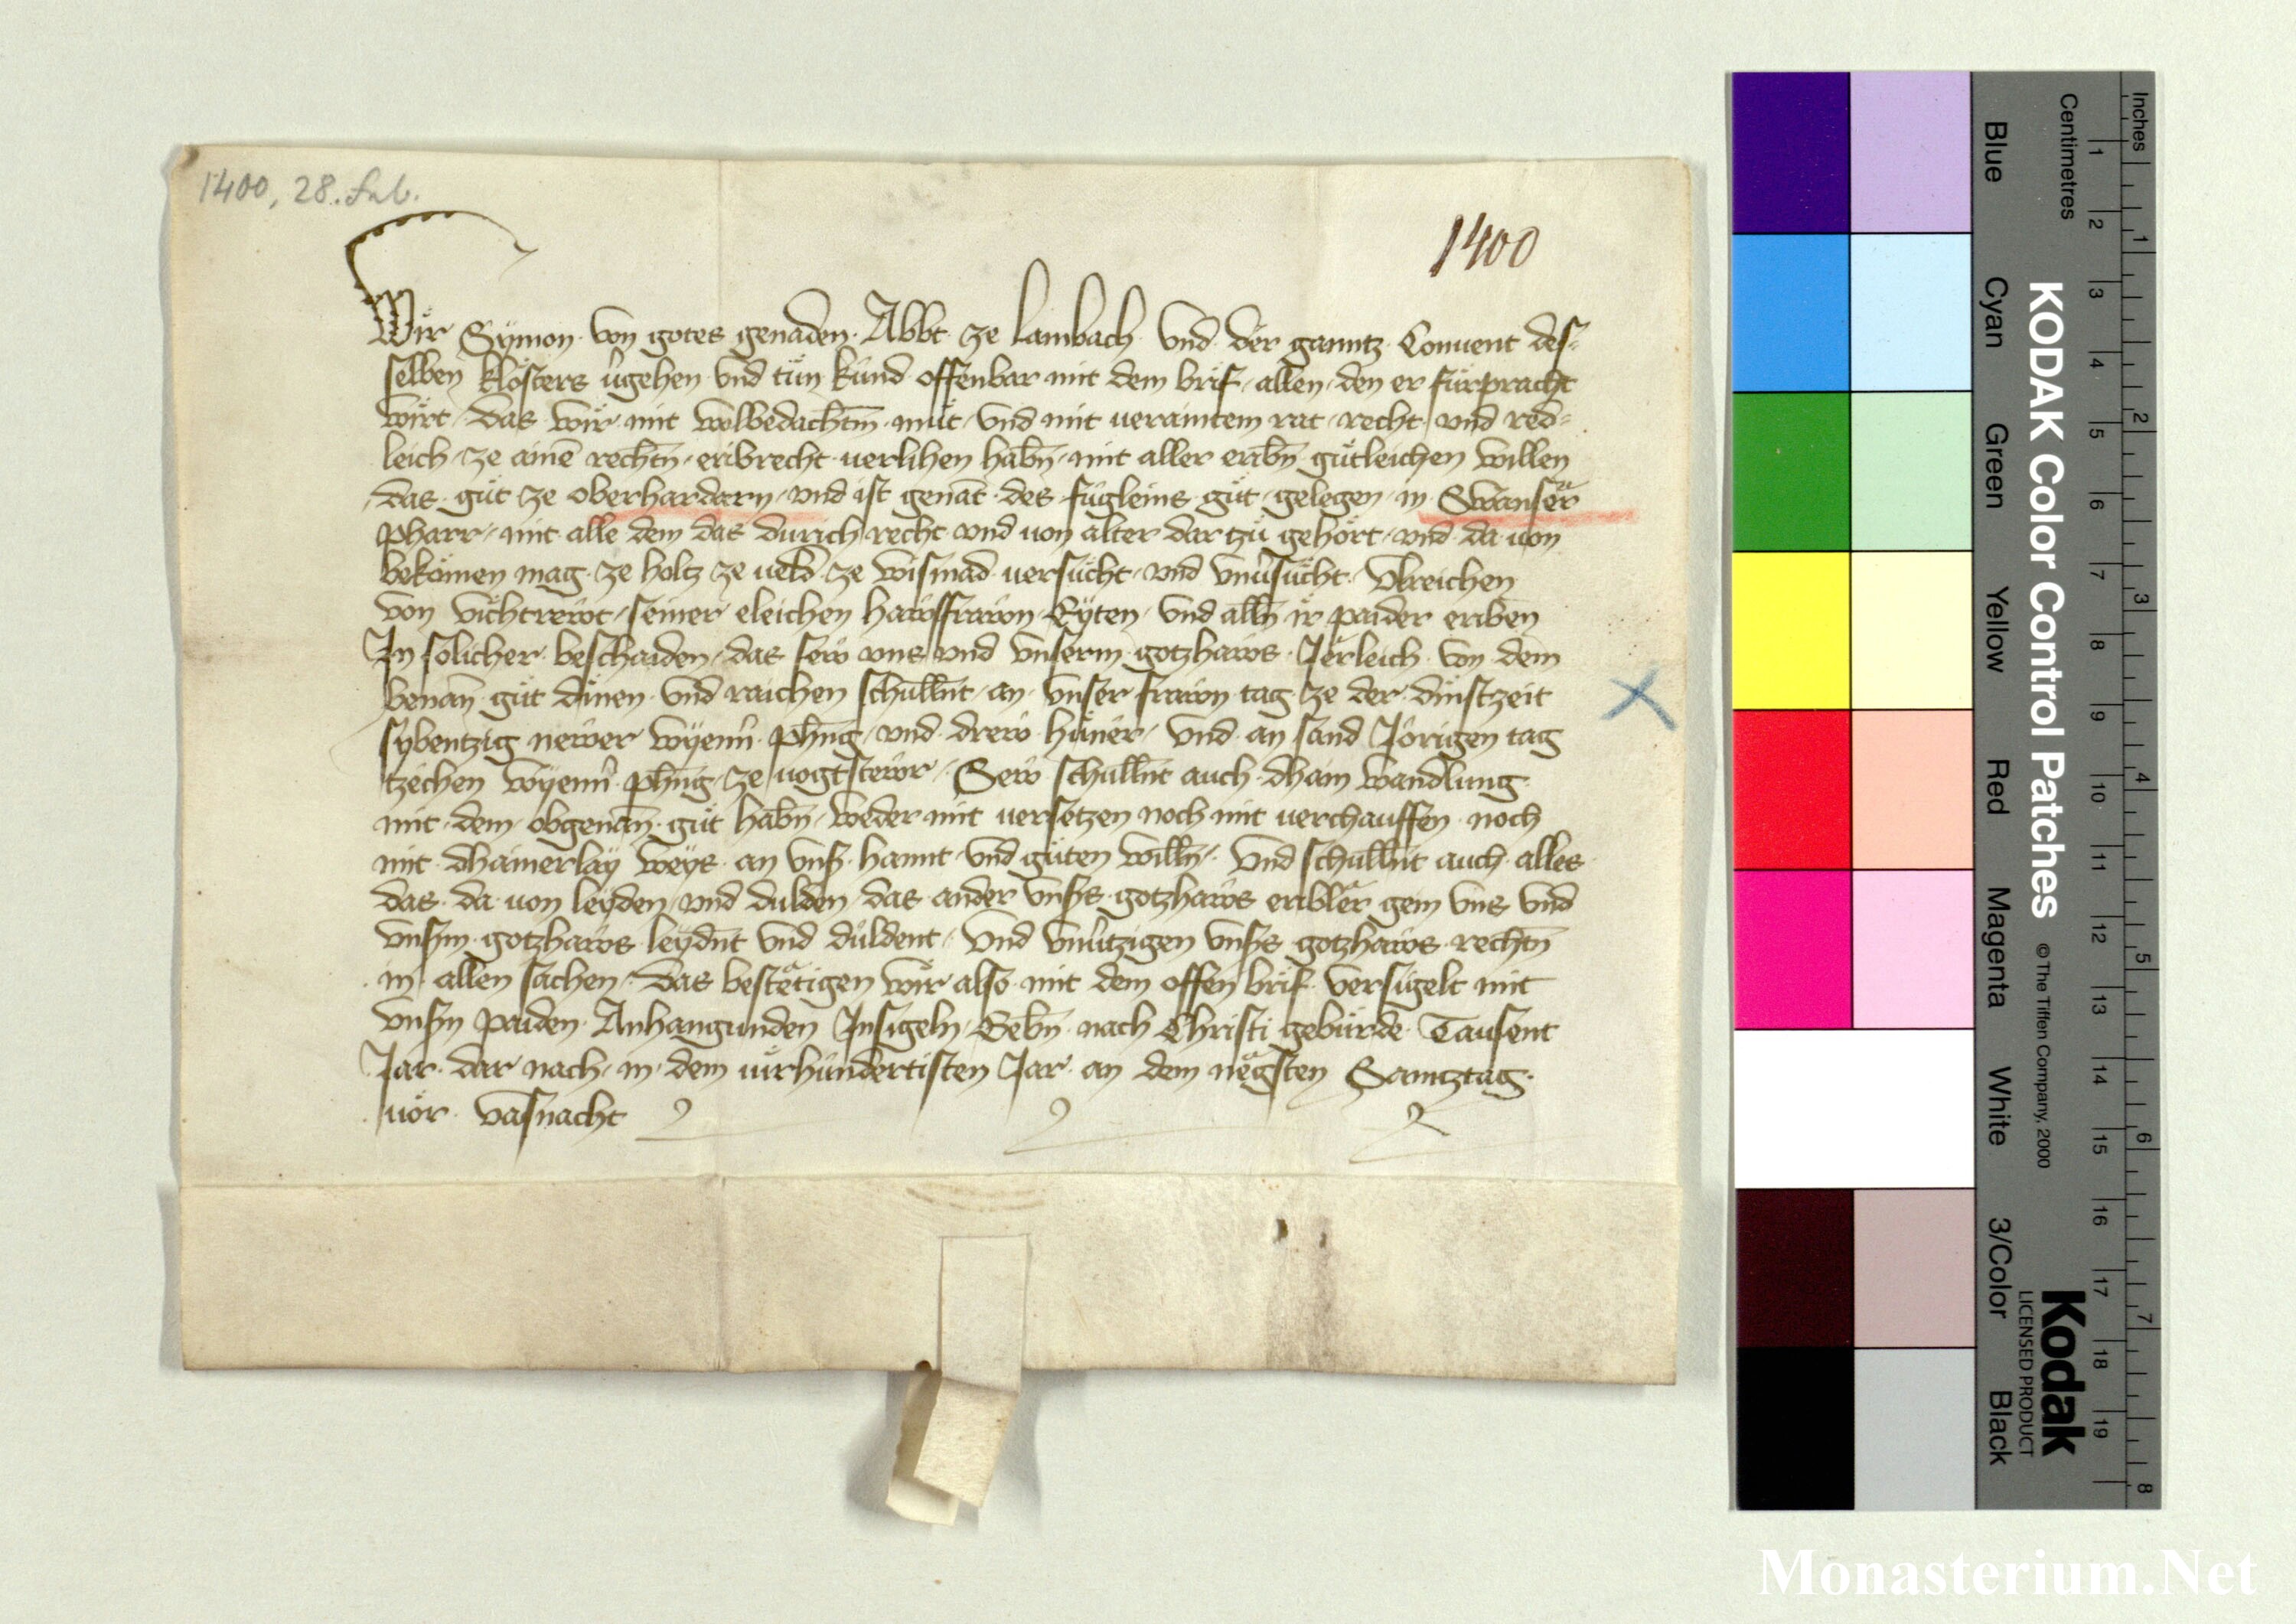 1400, 28. Feb.
1400
Wir Symon von gotes genaden Abbt ze Lambach und der ganntz Convent des-
selben klosters v̂gehen und tůn kund offenbar mit dem brif allen den er fürpracht
wirt das wir mit wolbedachtm̄ mut und mit veraintem rat recht und red=
leich ze ainē rechtn̄ eribrecht verlihen habn̄ mit aller eribn̄ gůtleichen willen
das gůt ze oberhardarn und ist genāt des fugleins gůt gelegen in Swanser
pharr mit alle dem das durich recht und von alter dar tzů gehört und da von
bekömen mag ze holtz ze veld ze wismad versůcht und vnv̂sůcht Ulreichen
von seiner eleichen hawsfrawn und alln̄ ir paider eriben
In solicher beschaiden das sew uns und unserm gotzhaws Jerleich von dem
benan̄ gůt dinen und raichen schulln̄t an unser frawn tag ze der dinstzeit
sybentzig newer wyenn̂ phn̄g und drew hůner und an sand Jörigen tag
tzechen wyenn̂ phn̄g ze vogtstewr Sew schulln̄t auch dhain wandlung
mit dem obgenan̄ gůt habn̄ weder mit versetzen noch mit verchauffen noch
mit dhainerlay weys an unß hannt und gůten willn̄ und schulln̄t auch alles
das da von leyden und dulden das ander unßs gotzhaws eribler gem uns und
unßm gotzhaws leydn̄t und duldent und unßs gotzhaws rechtn̄
in allen sachen das bestetigen wir also mit dem offen brif versigelt mit
unßn paiden Anhangunden Insigeln Gebn̄ nach Christi gebůrde Tausent
Jar dar nach in dem virhundertisten Jar an dem negsten Samtztag
vor vasnacht
KODAK Color Control Patches
© The Tiffen Company, 2000
Kodak
LICENSED PRODUCT
Inches
1 2 3 4 5 6 7 8
Centimetres
1 2 3 4 5 6 7 8 9 10 11 12 13 14 15 16 17 18 19
Blue Cyan Green Yellow Red Magenta White 3/Color Black
Monasterium.Net